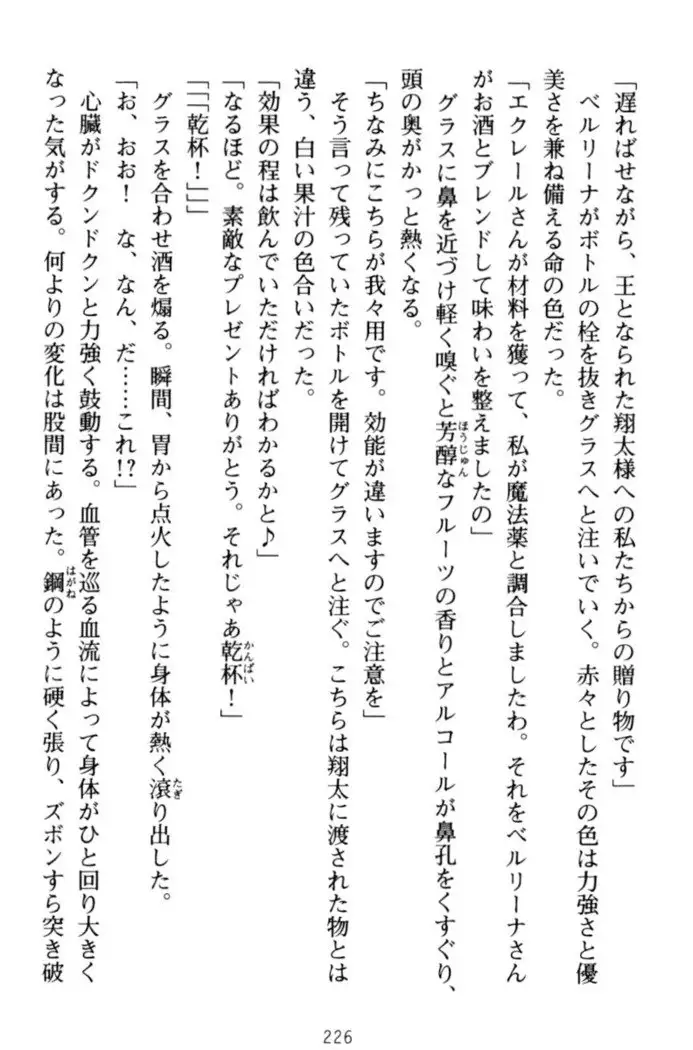 「遅ればせながら、王となられた翔太様への私たちからの贈り物です」
ベルリーナがボトルの栓を抜きグラスへと注いでいく。赤々としたその色は力強さと優
美さを兼ね備える命の色だった。
「エクレールさんが材料を獲って、私が魔法薬と調合しましたわ。それをベルリーナさん
がお酒とブレンドして味わいを整えましたの」
グラスに鼻を近づけ軽く嗅ぐと芳醇なフルーツの香りとアルコールが鼻孔をくすぐり、
頭の奥がかっと熱くなる。
「ちなみにこちらが我々用です。効能が違いますのでご注意を」
そう言って残っていたボトルを開けてグラスへと注ぐ。こちらは翔太に渡された物とは
違う、白い果汁の色合いだった。
「効果の程は飲んでいただければわかるかと♪」
「なるほど。素敵なプレゼントありがとう。それじゃあ乾杯！」
「「「乾杯！」」」
グラスを合わせ酒を煽る。瞬間、胃から点火したように身体が熱く滾り出した。
「お、おお！　な、なん、だ……これ!?」
心臓がドクンドクンと力強く鼓動する。血管を巡る血流によって身体がひと回り大きく
なった気がする。何よりの変化は股間にあった。鋼のように硬く張り、ズボンすら突き破
226